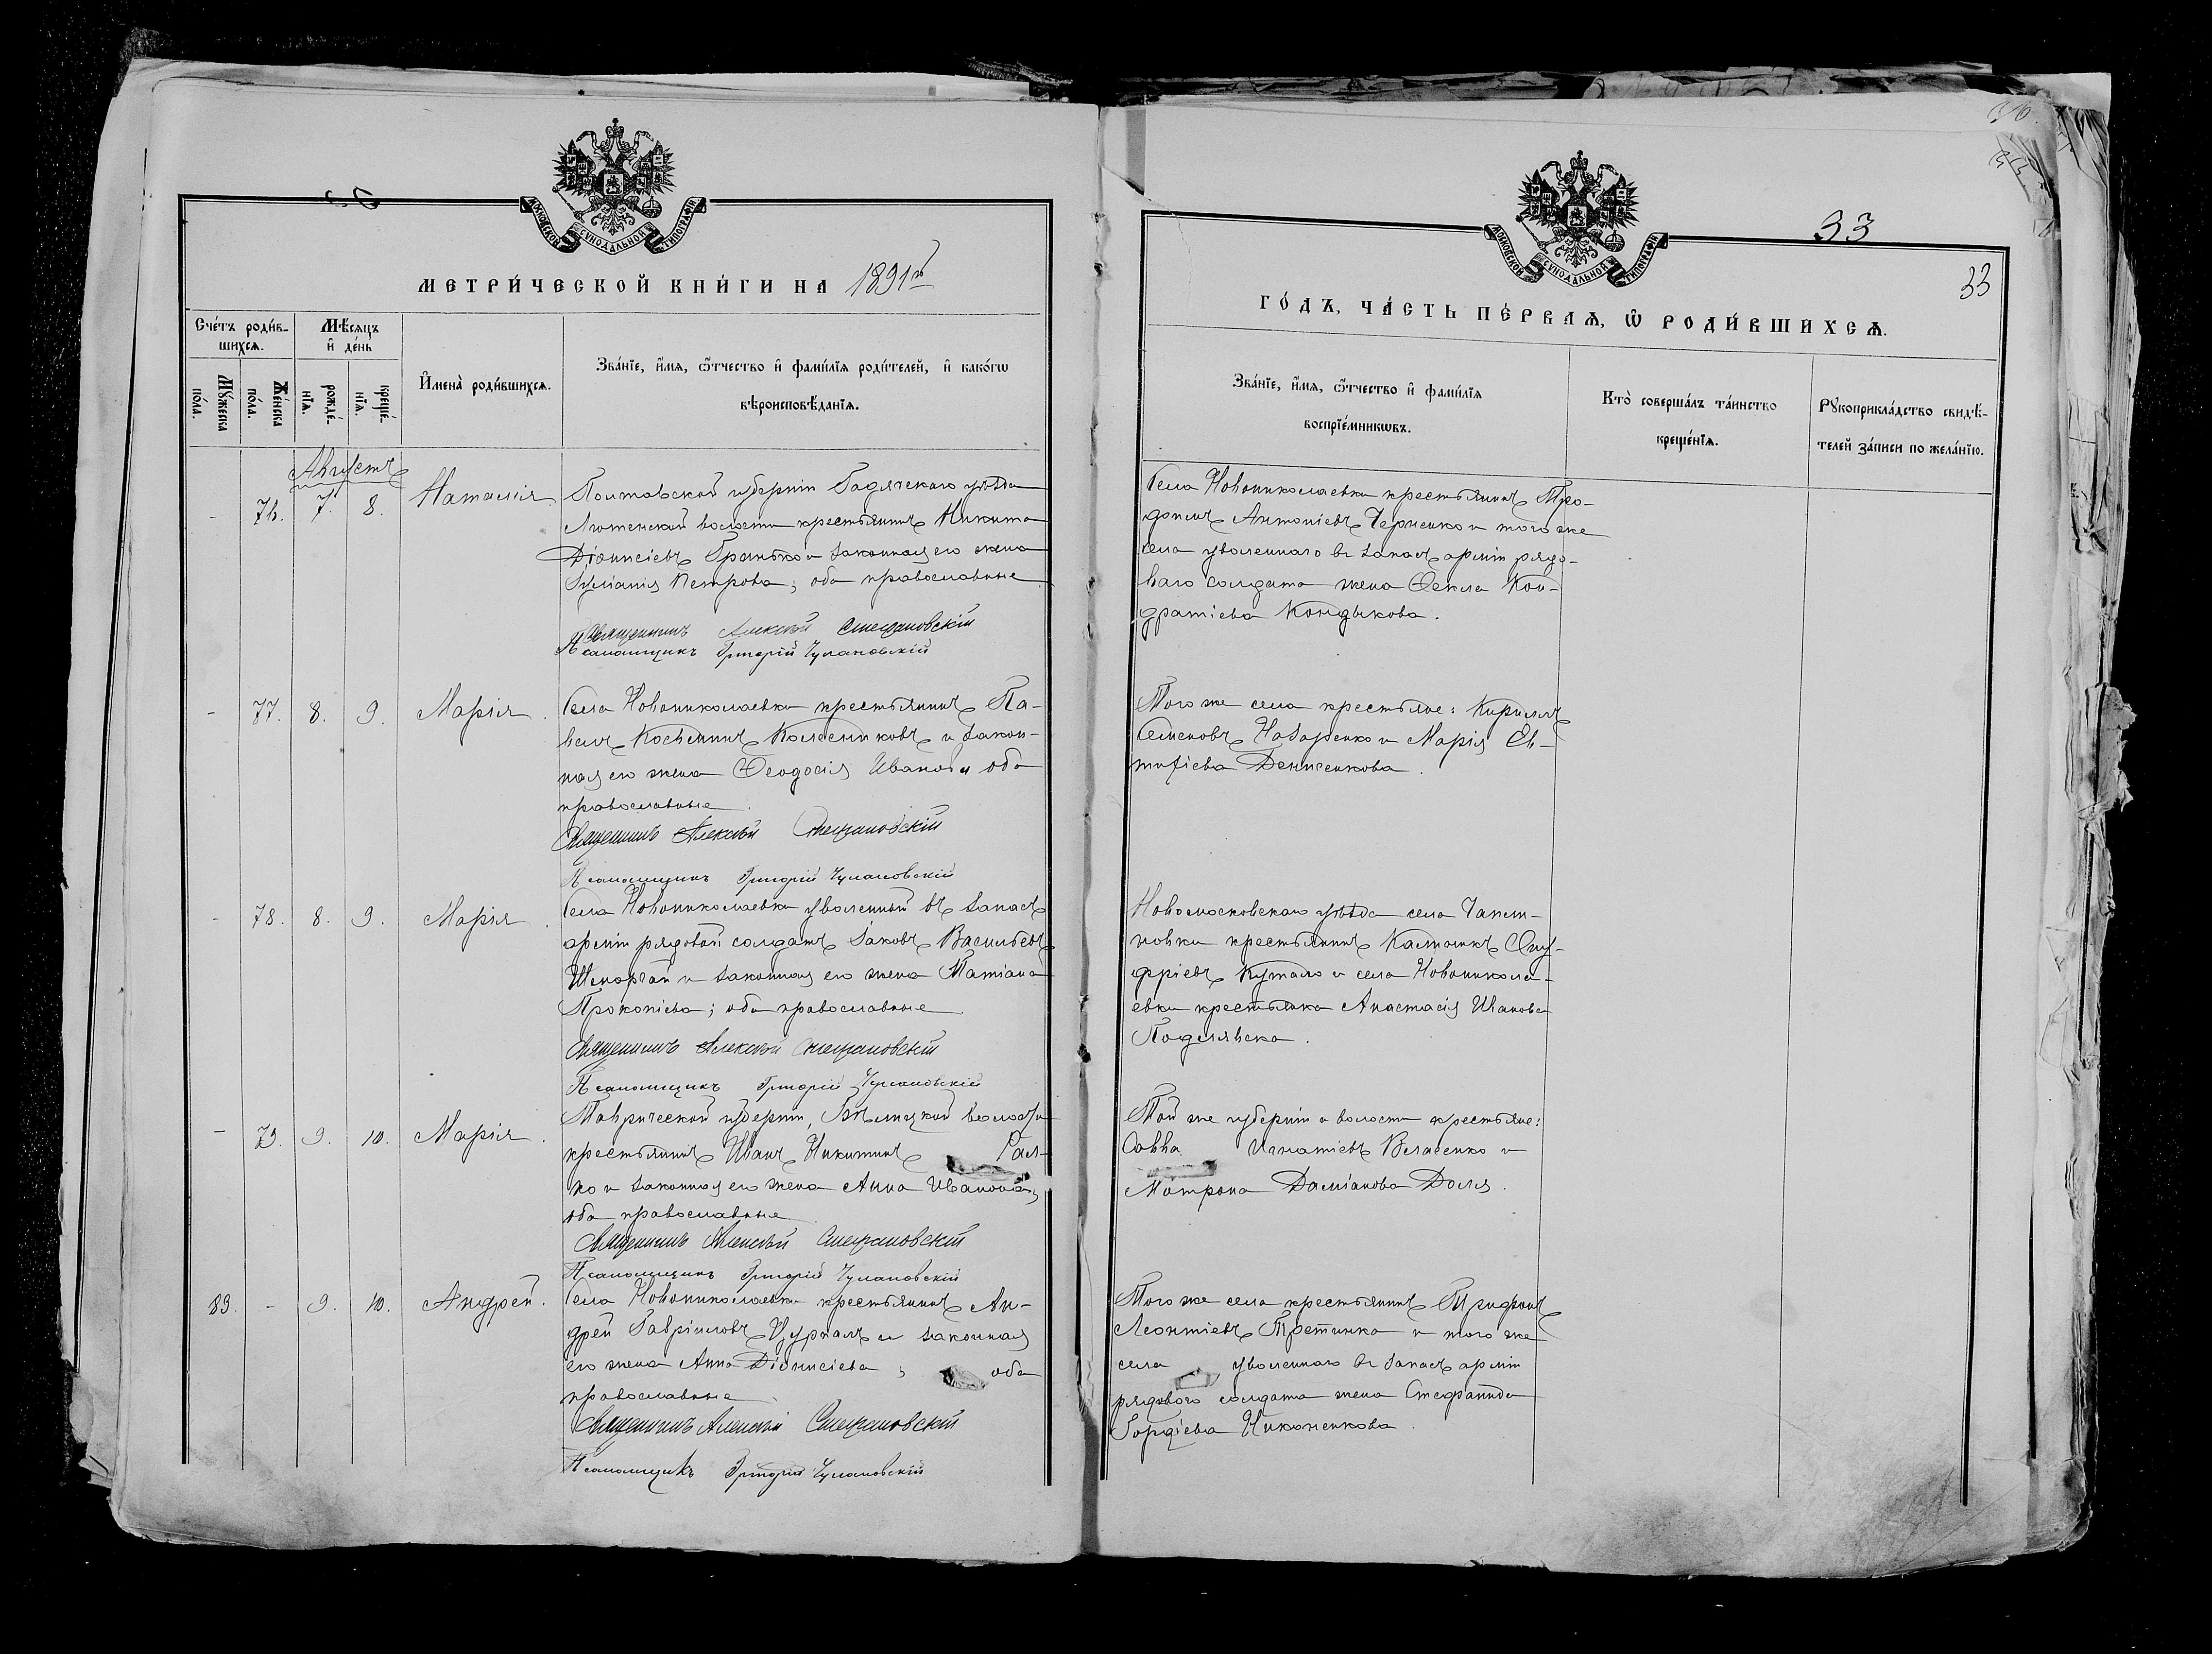 МОСКОВСКОЙ СУНОДАЛЬНОЙ ТИПОГРАФІИ
МЕТРИ́ЧЕСКОЙ КНИ́ГИ НА 1891й
Сче́тъ роди́в-
шихсѧ.
Мѣ́сѧцъ
и҆ де́нь
И҆мена̀ роди́вшихсѧ.
Зва́нїе, и҆́мѧ, ѻ҆́тчество и҆ фами́лїѧ роди́телей, и҆ како́гѡ
вѣроисповѣ́данїѧ.
Мꙋ́жеска
по́ла.
Же́нска
по́ла.
рожде́-
нїѧ.
креще́-
нїѧ.
Августъ
- 76. 7. 8. Наталія
Полтавской губерніи Гадячского уѣзда
Лютенской волости крестьянинъ Никита
Діонисіевъ Гранько и законная его жена
Іуліанія Петрова; оба православные
Священникъ Алексѣй Стефановскій
Псаломщикъ Григорій Чулановскій
- 77. 8. 9. Марія.
Села Новониколаевки крестьянинъ Па-
велъ Косьминъ Колесниковъ и закон-
ная его жена Ѳеодосія Иванова оба
православные.
Священникъ Алексѣй Стефановскій
Псаломщикъ Григорій Чулановскій
- 78. 8. 9. Марія.
Села Новониколаевки уволенный въ запасъ
арміи рядовой солдатъ Іаковъ Васильевъ
и законная его жена Татіана
Прокопіева; оба православные
Священникъ Алексѣй Стефановскій
Псаломщикъ Григорій Чулановскій
- 79. 9. 10. Марія.
Таврической губерніи, волости
крестьянинъ Иванъ Никитинъ Гал-
ко и законная его жена Анна Иванова,
оба православные.
Священникъ Алексѣй Стефановскій
Псаломщикъ Григорій Чулановскій
89. - 9. 10. Андрей.
Села Новониколаевки крестьянинъ Ан-
дрей Гавріиловъ Цуркалъ и законная
его жена Анна Діонисіева; оба
православные.
Священникъ Алексѣй Стефановскій
Псаломщикъ Григорій Чулановскій
МОСКОВСКОЙ СУНОДАЛЬНОЙ ТИПОГРАФІИ
33
33
ГО́ДЪ, ЧА́СТЬ ПЕ́РВАѦ, Ѡ҆ РОДИ́ВШИХСѦ.
Зва́нїе, и҆́мѧ, ѻ҆́тчество и҆ фами́лїѧ
воспрїе́мникѡвъ.
Кто̀ соверша́лъ та́инство
креще́нїѧ.
Рꙋкоприкла́дство свидѣ́-
телей за́писи по жела́нїю.
Села Новониколаевки крестьянинъ Тро-
фимъ Антоніевъ Черненко и того же
села уволеннаго въ запасъ арміи рядо-
ваго солдата жена Ѳекла Кон-
дратіева Кондыкова.
Того же села крестьяне: Кириллъ
Семеновъ Назаренко и Марія Ев-
тиѳіева Денисенкова.
Новомосковскаго уѣзда села
крестьянинъ Ону-
фріевъ и села Новоникола-
евки крестьянка Анастасія Иванова
Той же губерніи и волости крестьяне:
Савва Игнатіевъ Власенко и
Матрона Даміанова Доля.
Того же села крестьянинъ Трифонъ
Леонтіевъ и того же
села уволеннаго въ запасъ арміи
рядового солдата жена Стефанида
Гордіева Никоненкова.